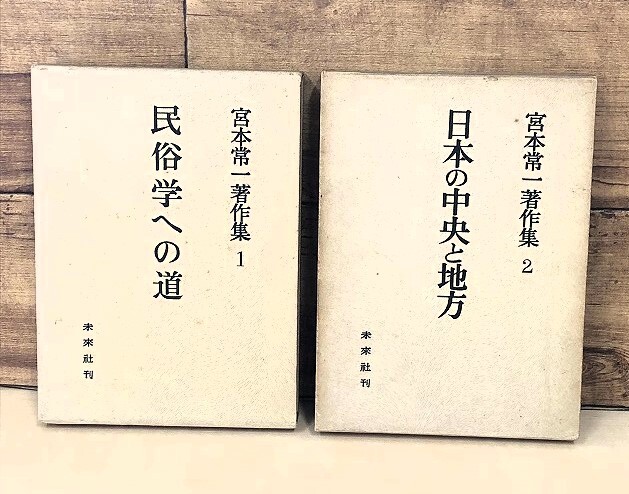 宮本常一著作集 1
民俗学への道
未來社刊
宮本常一著作集 2
日本の中央と地方
未來社刊